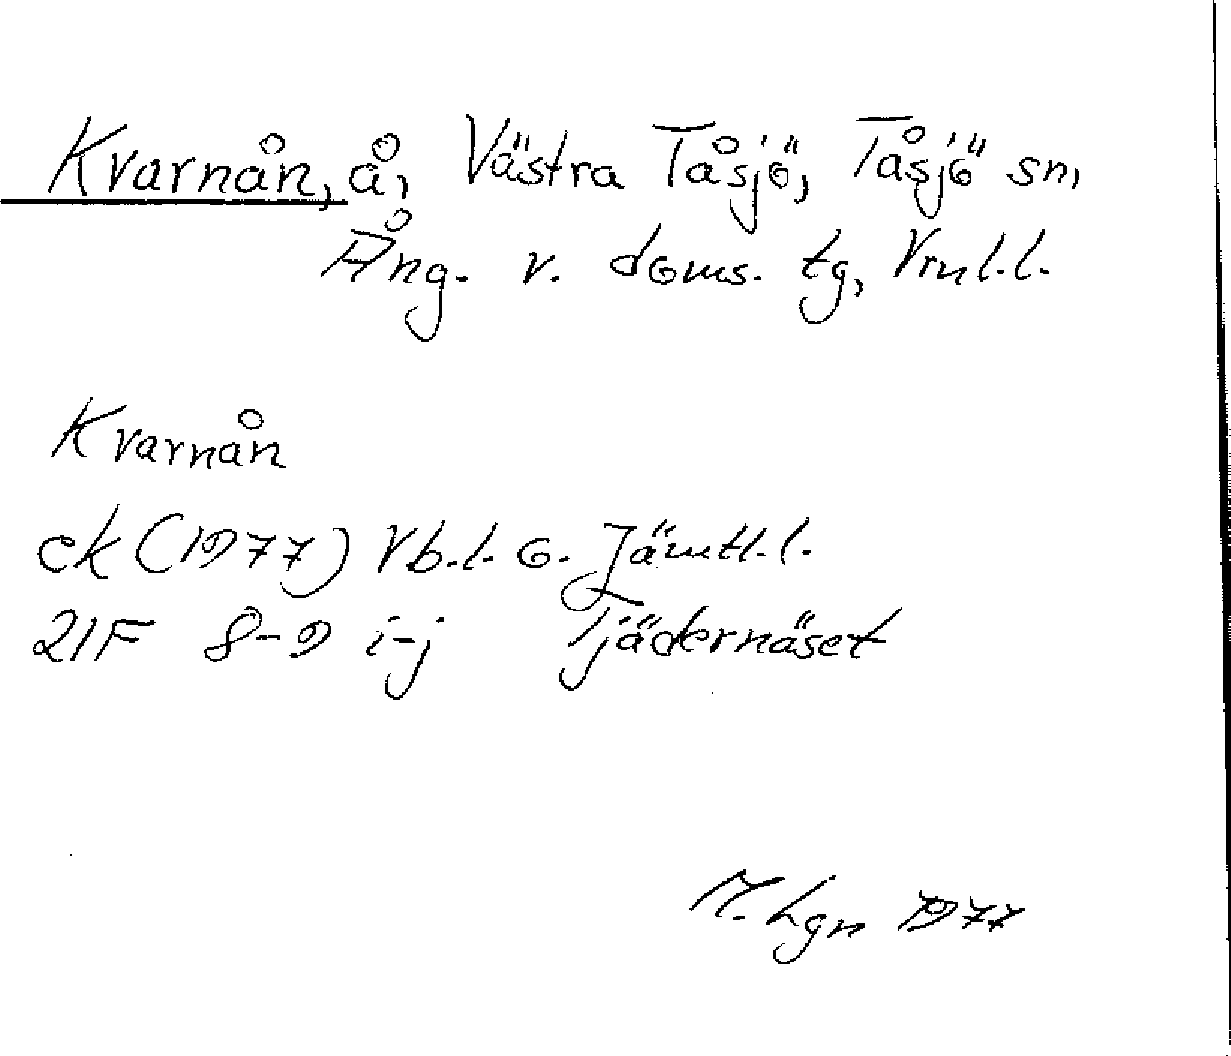 Kvarnån, å, Västra Tåsjö, Tåsjö sn,
Ång. v. doms. tg, Vrnl.l.
Kvarnån
ek (1977) Vb.l. o. Jämtl.l.
21F 8-9 i-j Tjädernäset
M. Lgn 1977